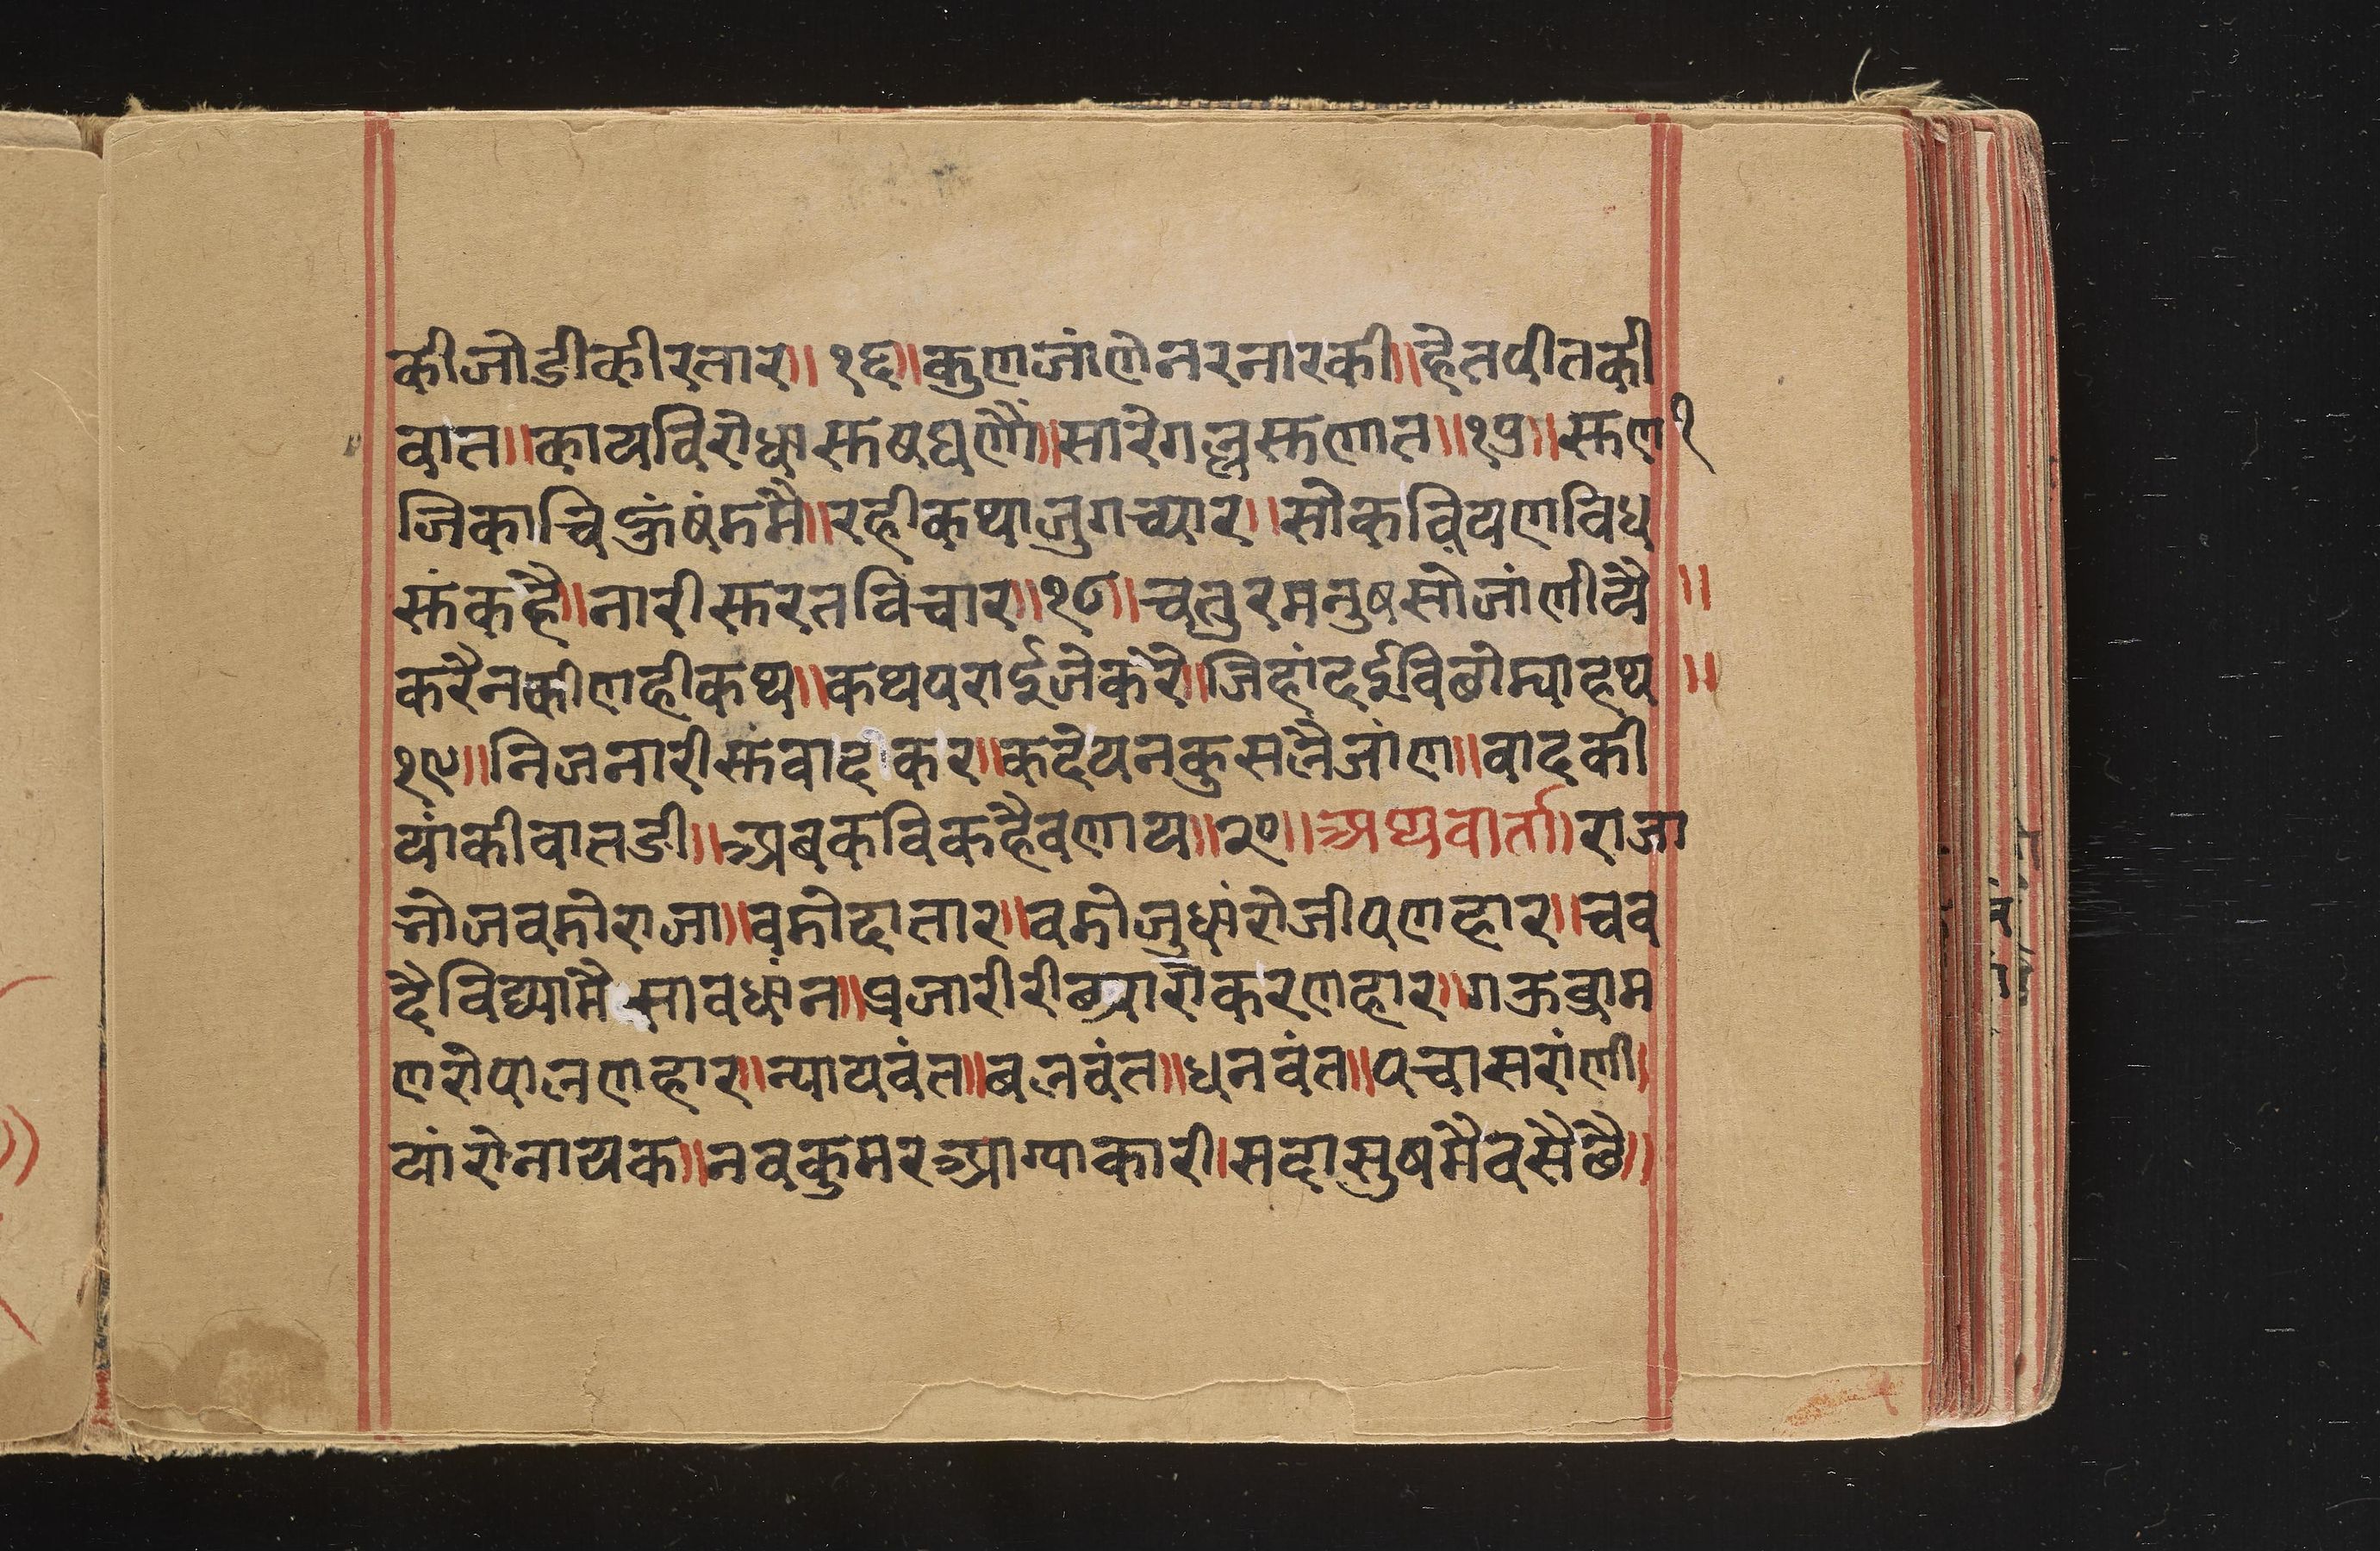 कीजोडीकीरतार॥१६॥कुणजांणेनरनारकी॥हैतपीतकी
वात॥कायविरोधासूषघणौं॥सारेगलूसूणात॥१७॥सूण१
जिकाचिहूंषंडमै॥रहीकथाजुगच्यार॥सोकवियणविध
सूंकहै॥नारीसूरतविचार॥१८॥चतुरमनुषसोजांणीयै॥
करैनकीणहीकथ॥कथपराईजेकरे॥जिहांदईविछोम्याहथ॥
१९॥निजनारीसूंवादकर॥कदेयनकुसलैजांण॥वादकी
यांकीवातडी॥अबकविकहैवणाय॥२०॥अथवार्ता।राजा
भोजवडोराजा॥वडोदातार॥वडोजुधांरोजीपणहार॥चव
दैविद्यामैसावधांन॥प्रजारीरीछ्यारोकरणहार॥गऊब्राम
णरोपालणहार॥न्यायवंत॥बलवंत॥धनवंत॥पचासरांणी
यांरोनायक॥नवकुमरआग्याकारी।सदासुषमैवसैछै॥